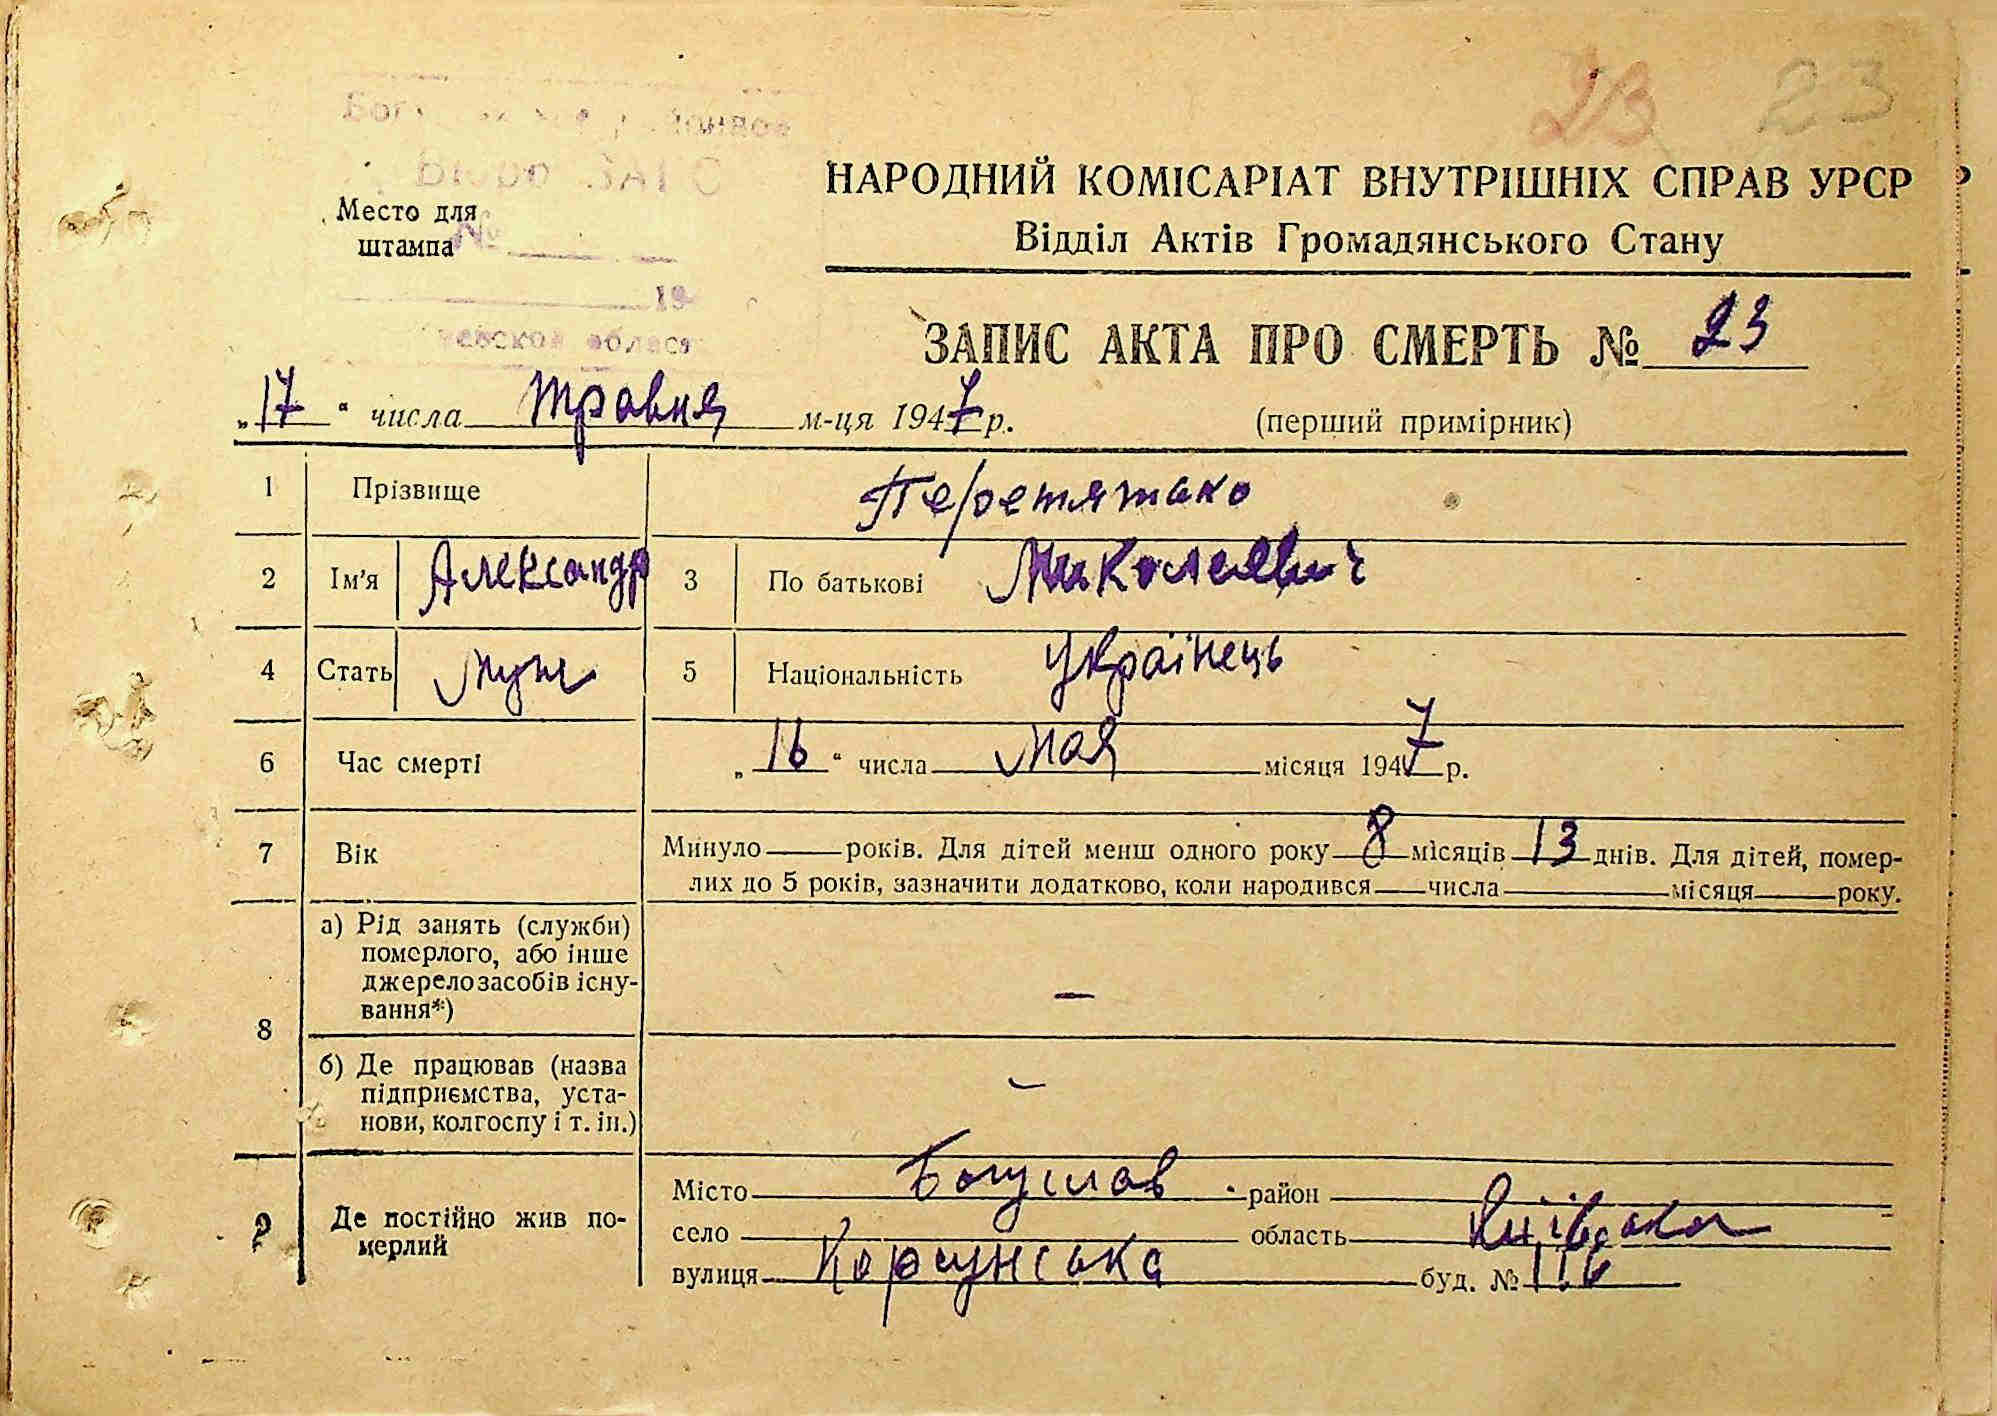 23 23
НАРОДНИЙ КОМІСАРІАТ ВНУТРІШНІХ СПРАВ УРСР
Место для
штампа
№
Відділ Актів Громадянського Стану
19
ЗАПИС АКТА ПРО СМЕРТЬ № 23
„17“ числа травня м-ця 1947 р. (перший примірник)
1 Прізвище Перетятако
2 Ім'я Александр 3 По батькові Миколаевич
4 Стать муж 5 Національність Українець
6 Час смерті „16“ числа мая місяця 1947 р.
7 Вік Минуло років. Для дітей менш одного року 8 місяців 13 днів. Для дітей, помер-
лих до 5 років, зазначити додатково, коли народився числа місяця року.
8 а) Рід занять (служби)
померлого, або інше
джерело засобів існу-
вання*) —
б) Де працював (назва
підприємства, уста-
нови, колгоспу і т. ін.) —
9 Де постійно жив по-
мерлий
Місто Богуслав район
село область Київська
вулиця Корсунська буд. № 116